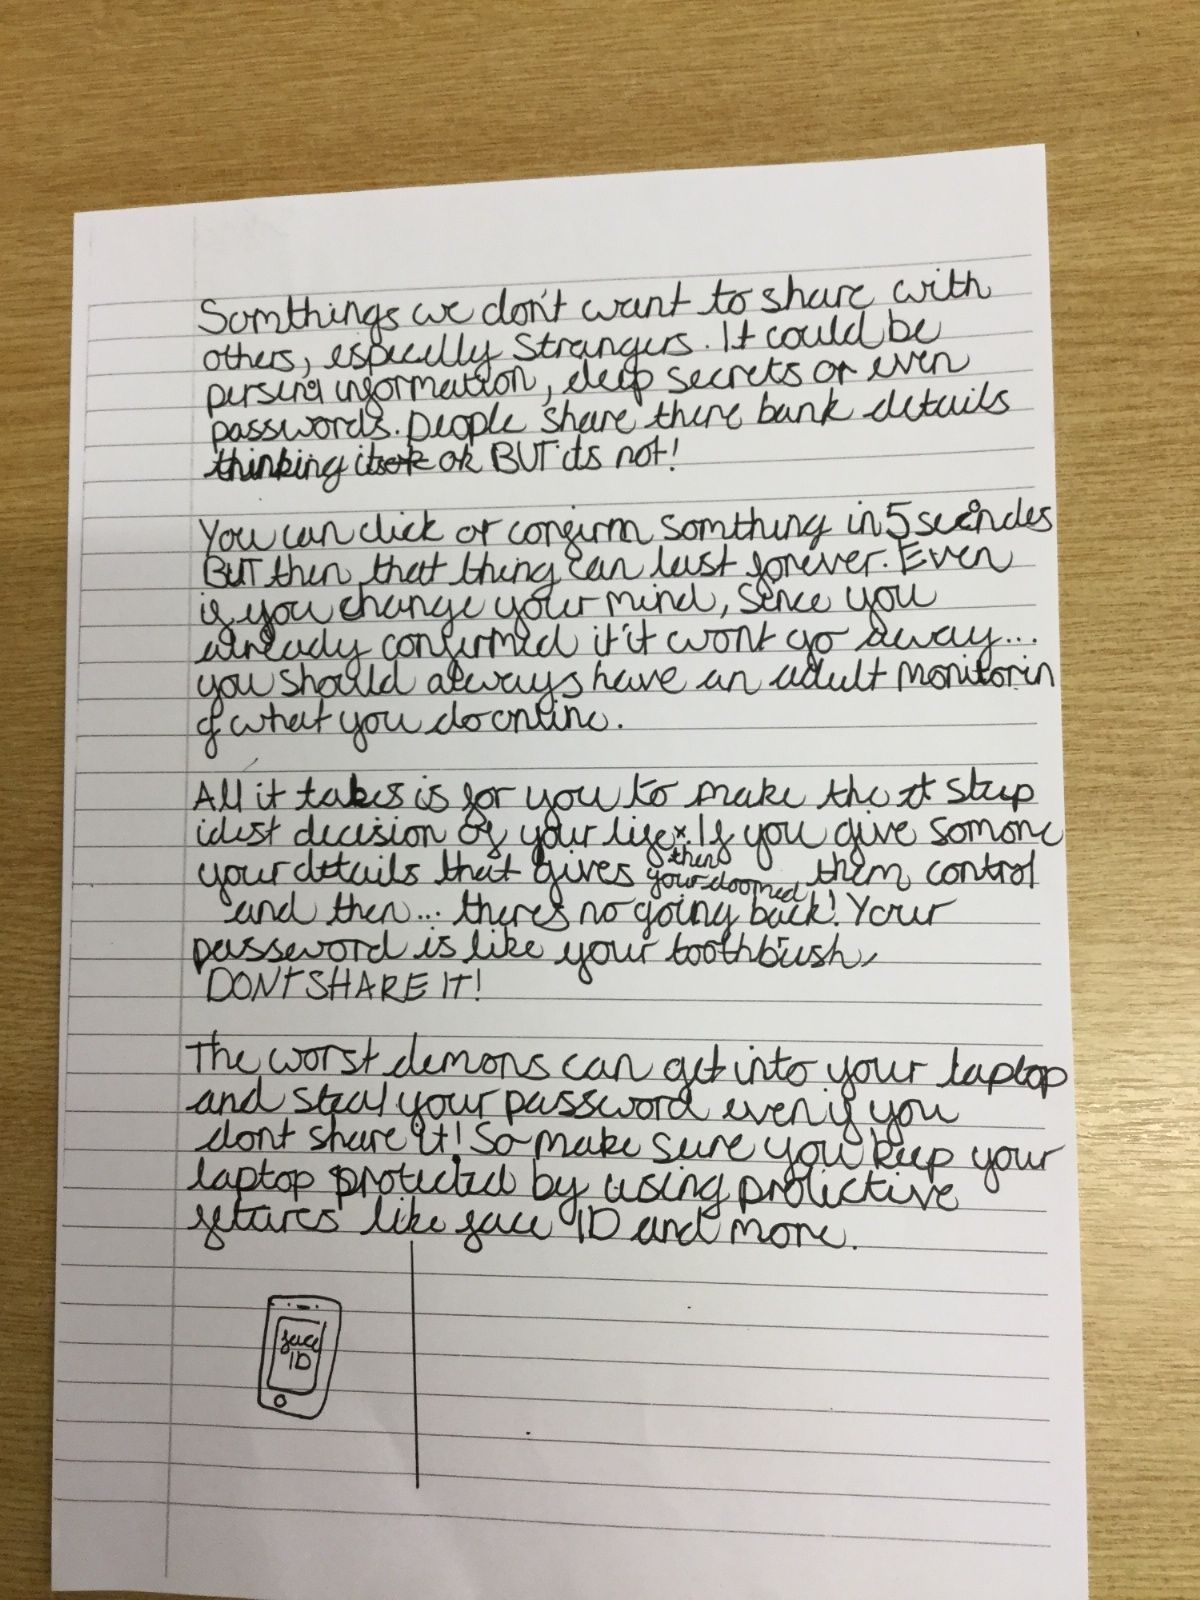 Somthings we don't want to share with
others, especilly strangers. It could be
persenol information, deep secrets or even
passwords. people share there bank details
thinking its ok BUT its not!
You can click or confirm somthing in 5 secindes
BUT then that thing can last forever. Even
if you change your mind, sence you
already confirmed it it wont go away...
you should always have an adult monitorin
of what you do online.
All it takes is for you to make the st stup
idest decision of your life. If you give somone
your details that gives them control
then
your doomed
and then... theres no going back! Your
password is like your toothbush,
DONT SHARE IT!
The worst demons can get into your laptop
and steal your password even if you
dont share it! So make sure you keep your
laptop protected by using protective
fetares like face ID and more.
face
ID